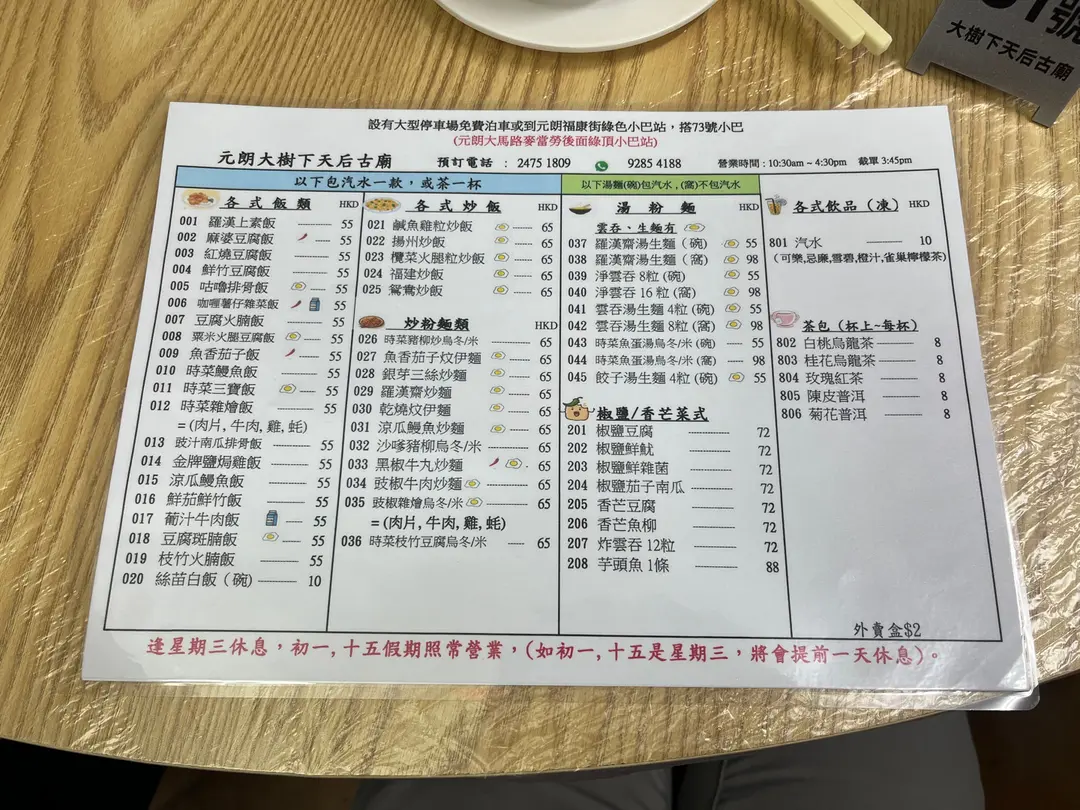 號
大樹下天后古廟
設有大型停車場免費泊車或到元朗福康街綠色小巴站，搭73號小巴
(元朗大馬路麥當勞後面綠頂小巴站)
元朗大樹下天后古廟 預訂電話 : 2475 1809 9285 4188 營業時間 : 10:30am ~ 4:30pm 截單 3:45pm
以下包汽水一款，或茶一杯
各式飯類 HKD
001 羅漢上素飯 55
002 麻婆豆腐飯 55
003 紅燒豆腐飯 55
004 鮮竹豆腐飯 55
005 咕嚕排骨飯 55
006 咖喱薯仔雜菜飯 55
007 豆腐火腩飯 55
008 粟米火腿豆腐飯 55
009 魚香茄子飯 55
010 時菜鰻魚飯 55
011 時菜三寶飯 55
012 時菜雜燴飯 55
= (肉片, 牛肉, 雞, 蚝)
013 豉汁南瓜排骨飯 55
014 金牌鹽焗雞飯 55
015 涼瓜鰻魚飯 55
016 鮮茄鮮竹飯 55
017 葡汁牛肉飯 55
018 豆腐斑腩飯 55
019 枝竹火腩飯 55
020 絲苗白飯 (碗) 10
各式炒飯 HKD
021 鹹魚雞粒炒飯 65
022 揚州炒飯 65
023 欖菜火腿粒炒飯 65
024 福建炒飯 65
025 鴛鴦炒飯 65
炒粉麵類 HKD
026 時菜豬柳炒烏冬/米 65
027 魚香茄子炆伊麵 65
028 銀芽三絲炒麵 65
029 羅漢齋炒麵 65
030 乾燒炆伊麵 65
031 涼瓜鰻魚炒麵 65
032 沙嗲豬柳烏冬/米 65
033 黑椒牛丸炒麵 65
034 豉椒牛肉炒麵 65
035 豉椒雜燴烏冬/米 65
= (肉片, 牛肉, 雞, 蚝)
036 時菜枝竹豆腐烏冬/米 65
以下湯麵(碗)包汽水 , (窩)不包汽水
湯粉麵 HKD
雲吞、生麵有
037 羅漢齋湯生麵 ( 碗 ) 55
038 羅漢齋湯生麵 ( 窩 ) 98
039 淨雲吞 8粒 (碗) 55
040 淨雲吞 16 粒 (窩) 98
041 雲吞湯生麵 4粒 (碗) 55
042 雲吞湯生麵 8粒 (窩) 98
043 時菜魚蛋湯烏冬/米 (碗) 55
044 時菜魚蛋湯烏冬/米 (窩) 98
045 餃子湯生麵 4粒 (碗) 55
椒鹽/香芒菜式
201 椒鹽豆腐 72
202 椒鹽鮮魷 72
203 椒鹽鮮雜菌 72
204 椒鹽茄子南瓜 72
205 香芒豆腐 72
206 香芒魚柳 72
207 炸雲吞 12粒 72
208 芋頭魚 1條 88
各式飲品 (凍) HKD
801 汽水 10
(可樂,忌廉,雪碧,橙汁,雀巢檸檬茶)
茶包 (杯上~每杯)
802 白桃烏龍茶 8
803 桂花烏龍茶 8
804 玫瑰紅茶 8
805 陳皮普洱 8
806 菊花普洱 8
外賣盒$2
逢星期三休息，初一, 十五假期照常營業， (如初一, 十五是星期三，將會提前一天休息) 。